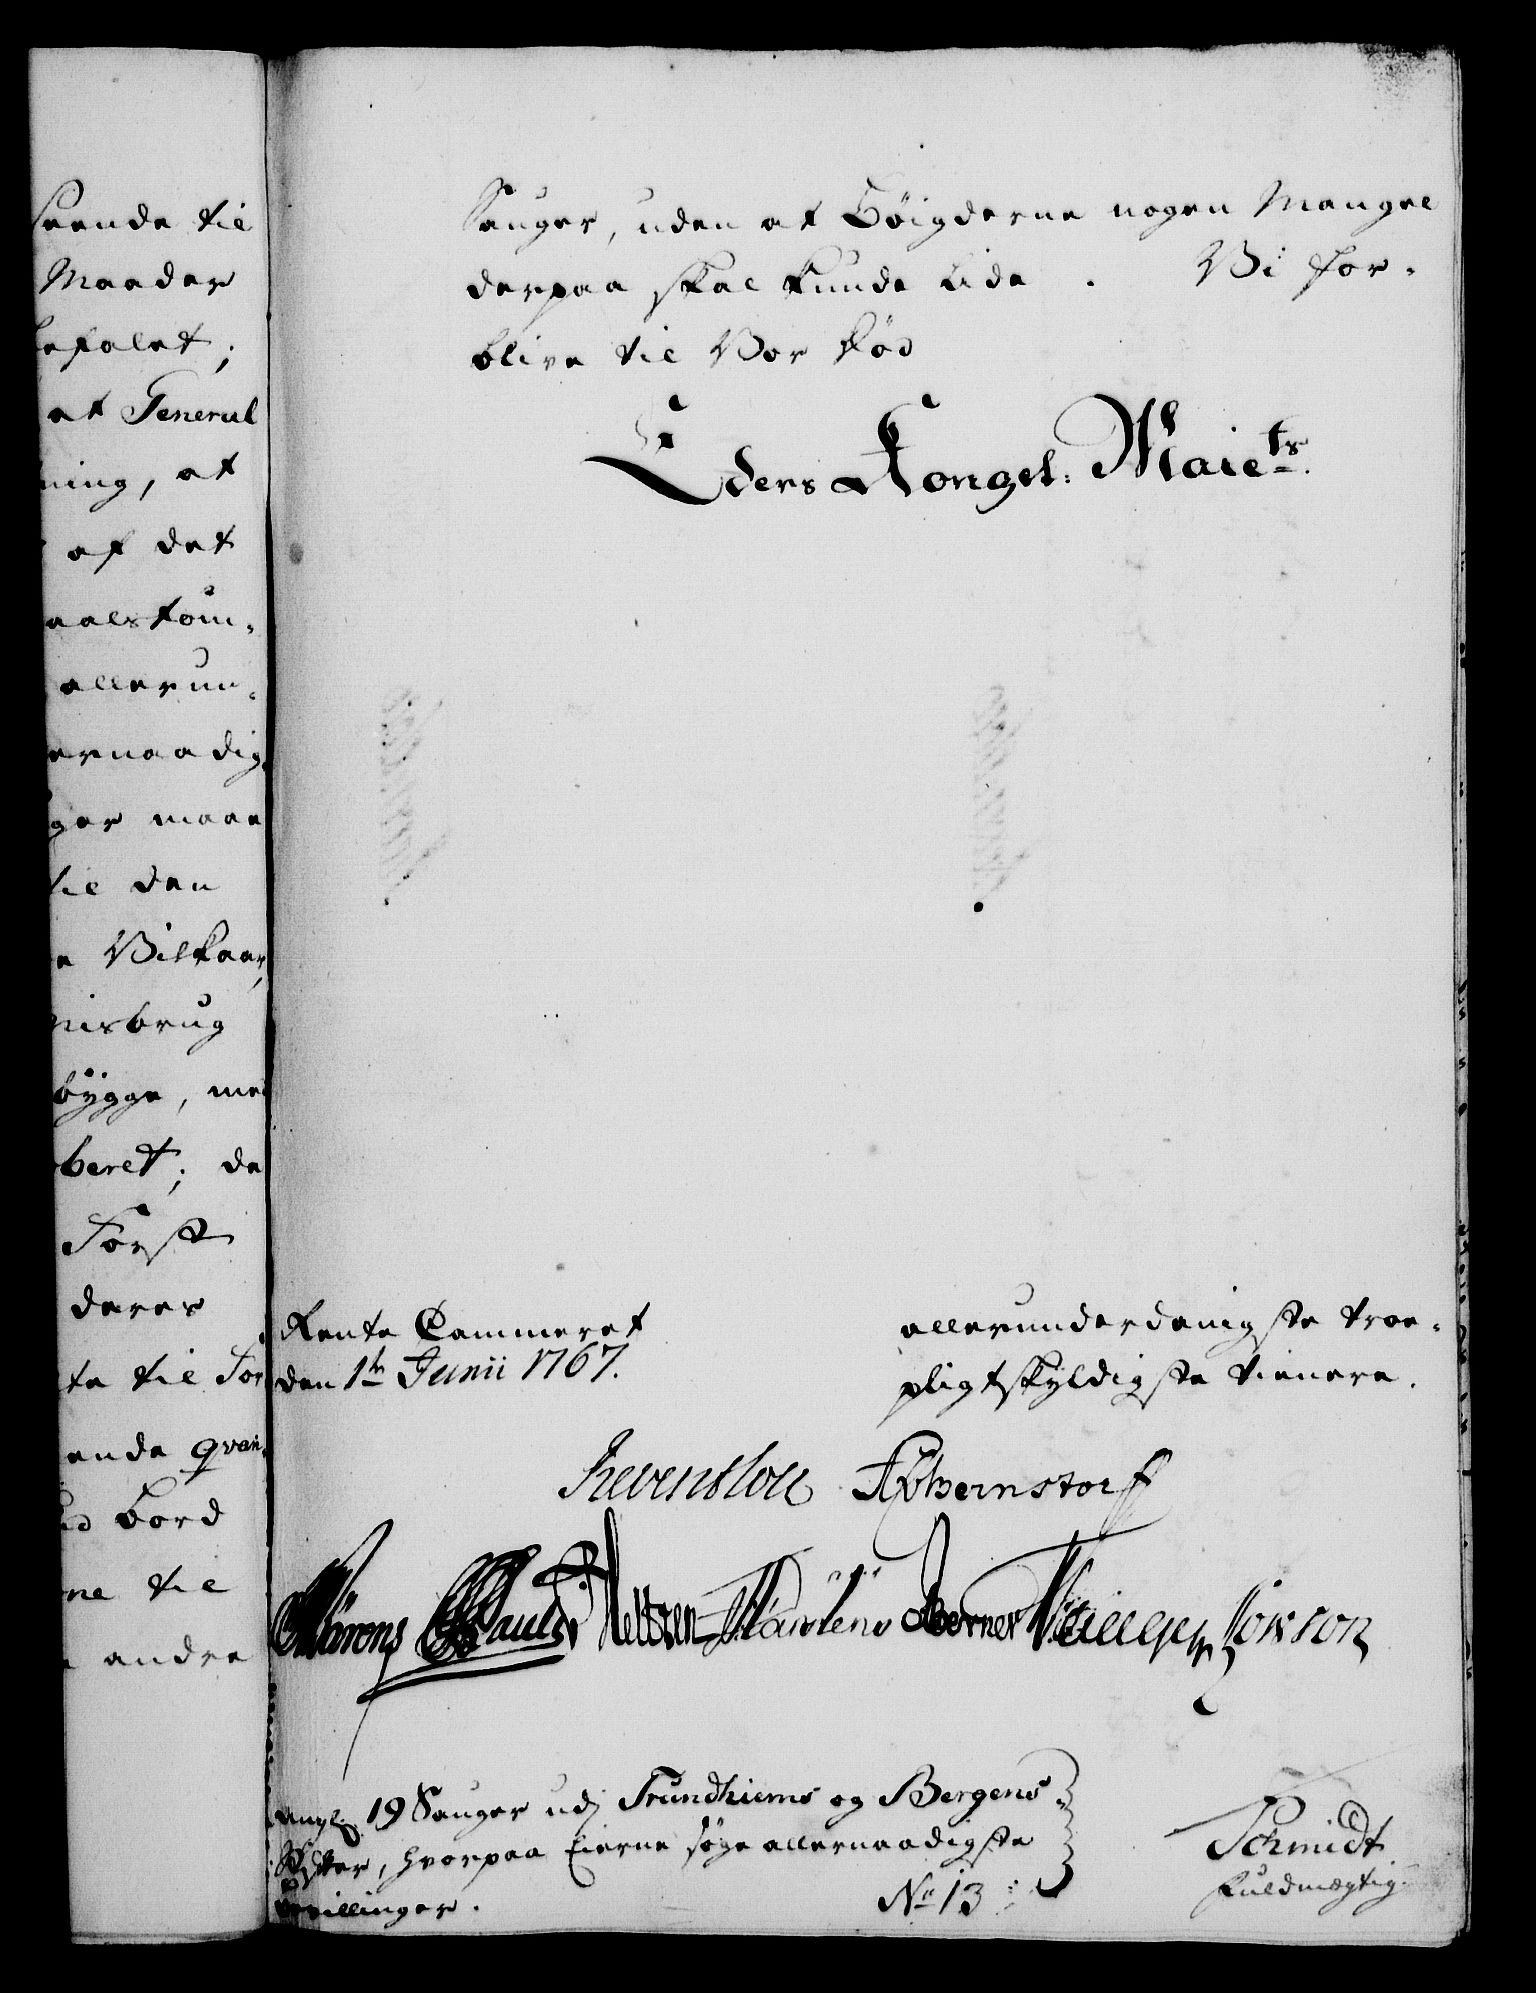 seende til
Maader
befalet;
at General
ning, at
af det
aalskom-
allerun-
ernaadig
ger maae
til den
e Vilkaar,
misbrug
bygge, med
beret; da
Først
deres
te til For
ende qvan-
ved Bord
ne til
andre
Sauger, uden at Bøigderne nogen Mangel
derpaa skal kunde lide . Vi for-
blive til Vor Død
Eders Kongel: Maiets.
Rente Cammeret
den 1te Junii 1767.
allerunderdanigste troe-
pligtskyldigste tienere.
Reventlou ABernstorff
Pauli Heltzen Berner
angl: 19 Sauger udj Trundhiems og Bergens
Stifter, hvorpaa Eierne søge allernaadigste
bevillinger.
No 13
Schmidt
Fuldmægtig